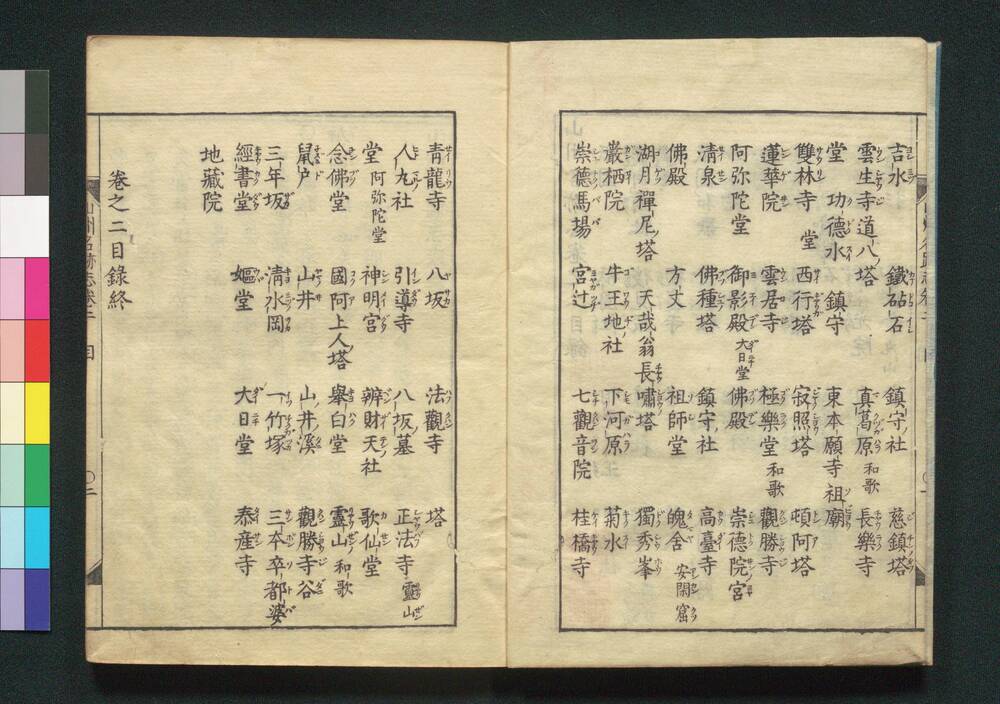 吉水 鐵砧石 鎮守社 慈鎮塔
雲生寺道八塔 真葛原 和歌 長樂寺
堂 功德水 鎮守 東本願寺祖廟
雙林寺 堂 西行塔 寂照塔 頓阿塔
蓮華院 雲居寺 極樂堂 和歌 觀勝寺
阿弥陀堂 御影殿 大日堂 佛殿 崇德院宮
清泉 佛種塔 鎮守社 高臺寺
佛殿 方丈 祖師堂 傀舎 安閑窟
湖月禪尼塔 天哉翁長嘯塔 獨秀峯
巖栖院 牛王地社 下河原 菊水
崇德馬場 宮辻 七觀音院 桂橋寺
青龍寺 八坂 法觀寺 塔
人九社 引導寺 八坂墓 正法寺 靈山
堂 阿弥陀堂 神明宮 辨財天社 歌仙堂
念佛堂 國阿上人塔 擧白堂 靈山 和歌
鼠戸 山井 山井溪 觀勝寺谷
三年坂 清水岡 一竹塚 三本卒都婆
經書堂 嫗堂 大日堂 泰産寺
地藏院
卷之二目錄終